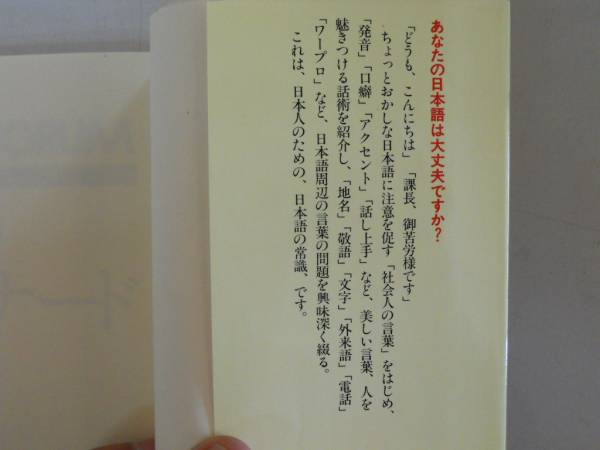 あなたの日本語は大丈夫ですか?
「どうも、こんにちは」「課長、御苦労様です」
ちょっとおかしな日本語に注意を促す「社会人の言葉」をはじめ、
「発音」「口癖」「アクセント」「話し上手」など、美しい言葉、人を
魅きつける話術を紹介し、「地名」「敬語」「文字」「外来語」「電話」
「ワープロ」など、日本語周辺の言葉の問題を興味深く綴る。
これは、日本人のための、日本語の常識、です。